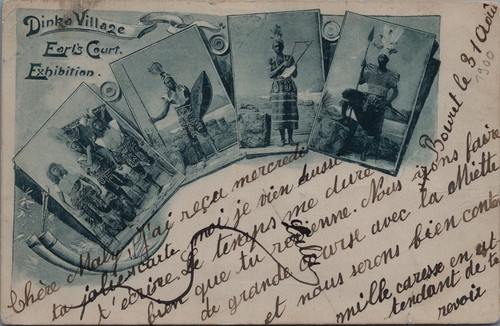 Dinka Village
Earl's Court.
Exhibition.
Bouret le 31 Août
1900
Chère Maly, J'ai reçu mercredi
ta jolie carte moi je vien aussi
t'écrire. Le temps me dure
bien que tu revienne. Nous irons faire
de grande course avec la Miette
et nous serons bien conten
mille caresse en at
tendant de te
revoir